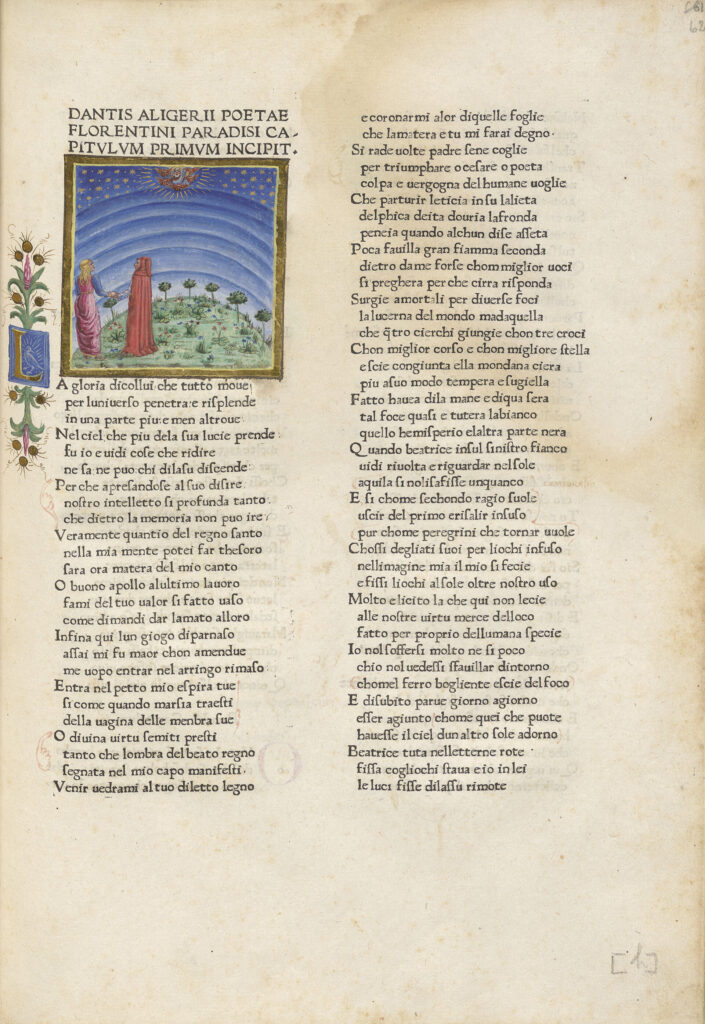 62
DANTIS ALIGERII POETAE
FLORENTINI PARADISI CA-
PITVLVM PRIMVM INCIPIT.
LA gloria dicollui che tutto moue
per luniuerso penetra: e risplende
in una parte piu: e men altroue
Nel ciel che piu dela sua lucie prende
fu io e uidi cose che ridire
ne sa ne puo chi dilasu discende:
Per che apresandose al suo disire
nostro intelletto si profunda tanto
che dietro la memoria non puo ire
Veramente quantio del regno santo
nella mia mente potei far thesoro
sara ora matera del mio canto
O buono apollo alultimo lauoro
fami del tuo ualor si fatto uaso
come dimandi dar lamato alloro
Infina qui lun giogo diparnaso
assai mi fu maor chon amendue
me uopo entrar nel arringo rimaso
Entra nel petto mio espira tue
si come quando marsia traesti
della uagina delle menbra sue
O diuina uirtu semiti presti
tanto che lombra del beato regno
segnata nel mio capo manifesti.
Venir uedrami al tuo diletto legno
e coronarmi alor diquelle foglie
che lamatera e tu mi farai degno.
Si rade uolte padre sene coglie
per triumphare o cesare o poeta
colpa e uergogna del humane uoglie
Che parturir leticia insu lalieta
delphica deita douria lafronda
peneia quando alchun dise asseta
Poca fauilla gran fiamma seconda
dietro dame forse chom miglior uoci
si preghera per che cirra risponda
Surgie amortali per diuerse foci
la lucerna del mondo madaquella
che q̃tro cierchi giungie chon tre croci
Chon miglior corso e chon migliore stella
e scie congiunta ella mondana ciera
piu asuo modo tempera e sugiella
Fatto hauea dila mane e diqua sera
tal foce quasi e tutera labianco
quello hemisperio elaltra parte nera
Quando beatrice insul sinistro fianco
uidi riuolta e riguardar nel sole
aquila si nolisafisse unquanco
E si chome sechondo ragio suole
uscir del primo erisalir insuso
pur chome peregrini che tornar uuole
Chossi degliati suoi per liochi infuso
nellimagine mia il mio si fecie
e fissi liochi al sole oltre nostro uso
Molto e licito la che qui non lecie
alle nostre uirtu merce delloco
fatto per proprio dellumana specie
Io nol soffersi molto ne si poco
chio nol uedessi sfauillar dintorno
chomel ferro bogliente escie del foco
E disubito parue giorno agiorno
esser agiunto chome quei che puote
hauesse il ciel dun altro sole adorno
Beatrice tuta nelletterne rote
fissa cogliochi staua e io in lei
le luci fisse dilassu rimote
[h]